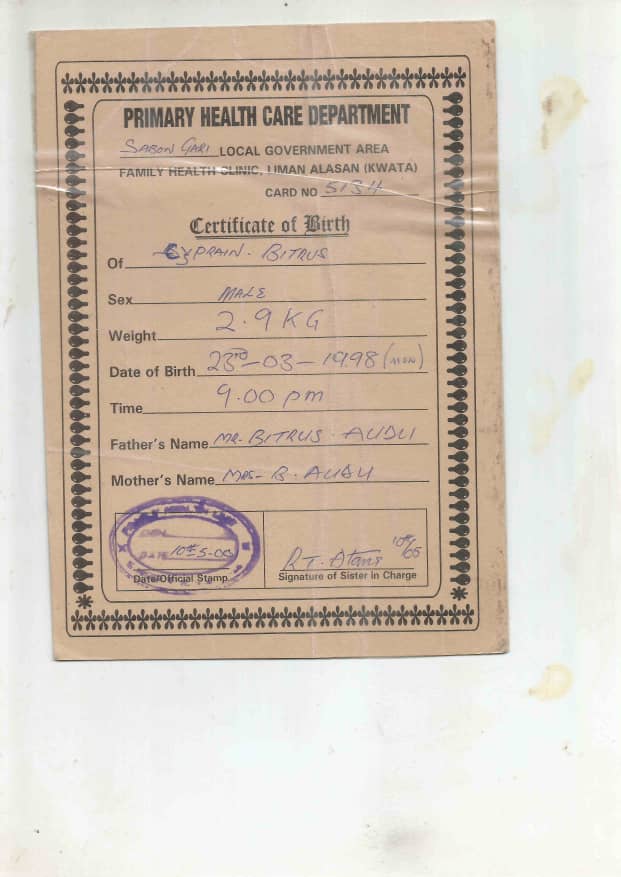 PRIMARY HEALTH CARE DEPARTMENT
SABON GARI LOCAL GOVERNMENT AREA
FAMILY HEALTH CLINIC, LIMAN ALASAN (KWATA)
CARD NO 5134
Certificate of Birth
Of CYPRAIN. BITRUS
Sex MALE
Weight 2.9 KG
Date of Birth 23RD-03-1998 (MON)
Time 9.00 pm
Father's Name MR. BITRUS. AUDU
Mother's Name MRS- B. AUDU
DATE 10th-5-00
Date/Official Stamp
Signature of Sister in Charge